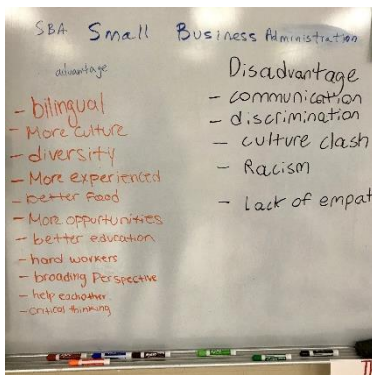 SBA Small Business Administration
advantage
- bilingual
- More culture
- diversity
- More experienced
- better food
- More opportunities
- better education
- hard workers
- broading Perspective
- help eachother
- critical thinking
Disadvantage
- communication
- discrimination
- culture clash
- Racism
- lack of empat